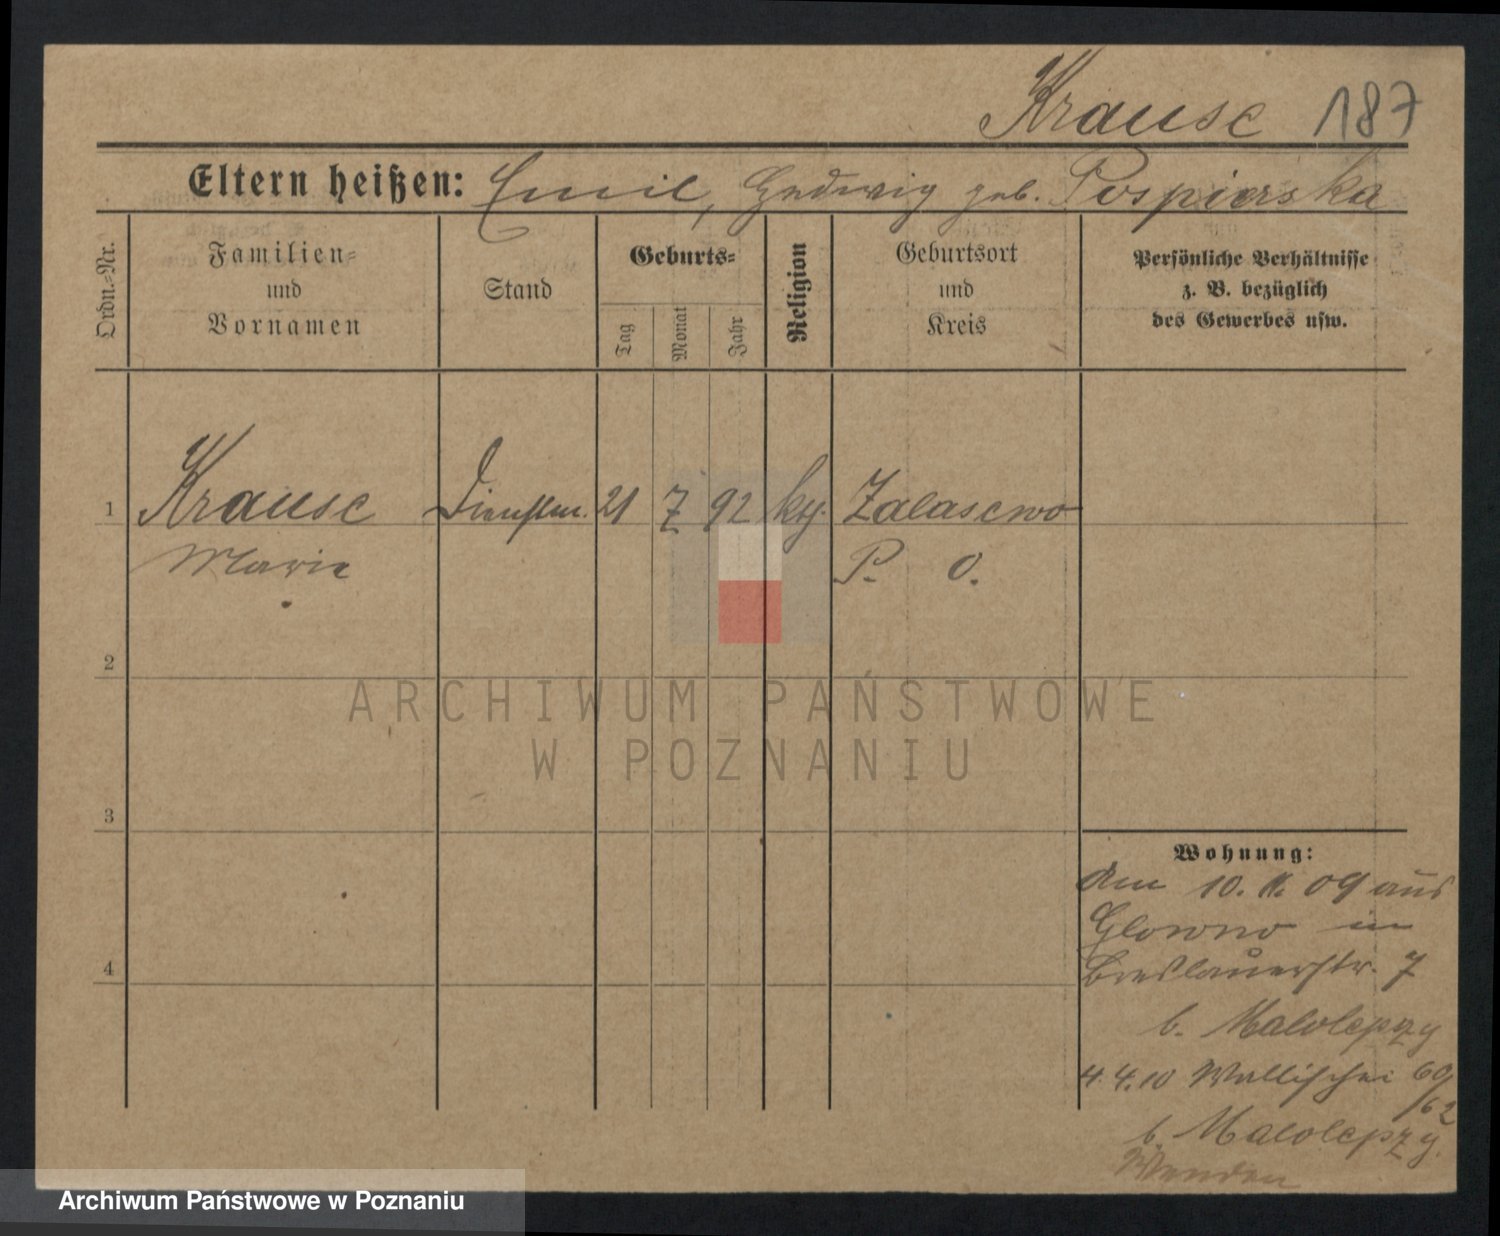 Krause 187
Eltern heißen: Emil, Hedwig geb. Pospierska
Ordn.-Nr.
Familien-
und
Vornamen
Stand
Geburts-
Tag
Monat
Jahr
Religion
Geburtsort
und
Kreis
Persönliche Verhältnisse
z. B. bezüglich
des Gewerbes usw.
1 Krause Dienstm. 21 7 92 Zalasewo
Marie P. O.
2
ARCHIWUM PAŃSTWOWE
W POZNANIU
3
Wohnung:
Am 10. 11. 09 aus
Glowno in
4
Breslauerstr. 7
b. Malolepszy
4.4.10 Wallischei 60/62
b. Malolepszy.
Wenden
Archiwum Państwowe w Poznaniu